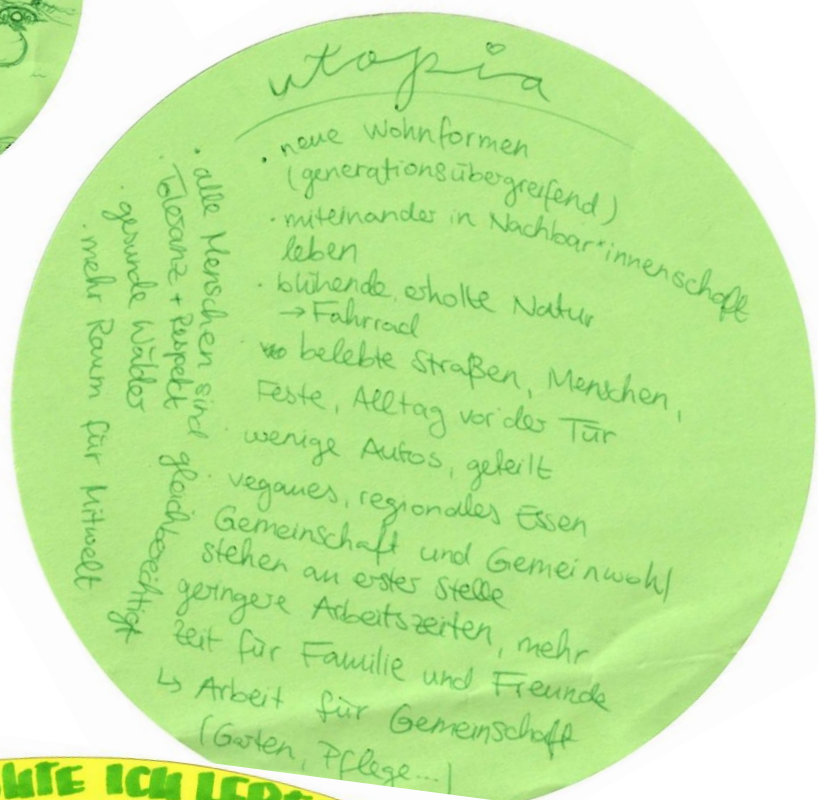 utopia
· neue Wohnformen
(generationsübergreifend)
· miteinander in Nachbar*innenschaft
leben
· blühende, erholte Natur
→ Fahrrad
belebte Straßen, Menschen,
Feste, Alltag vor der Tür
· wenige Autos, geteilt
· veganes, regionales Essen
Gemeinschaft und Gemeinwohl
stehen an erster Stelle
geringere Arbeitszeiten, mehr
Zeit für Familie und Freunde
↳ Arbeit für Gemeinschaft
(Garten, Pflege...)
· alle Menschen sind gleichberechtigt
· Toleranz + Respekt
· gesunde Wälder
· mehr Raum für Mitwelt
ICH